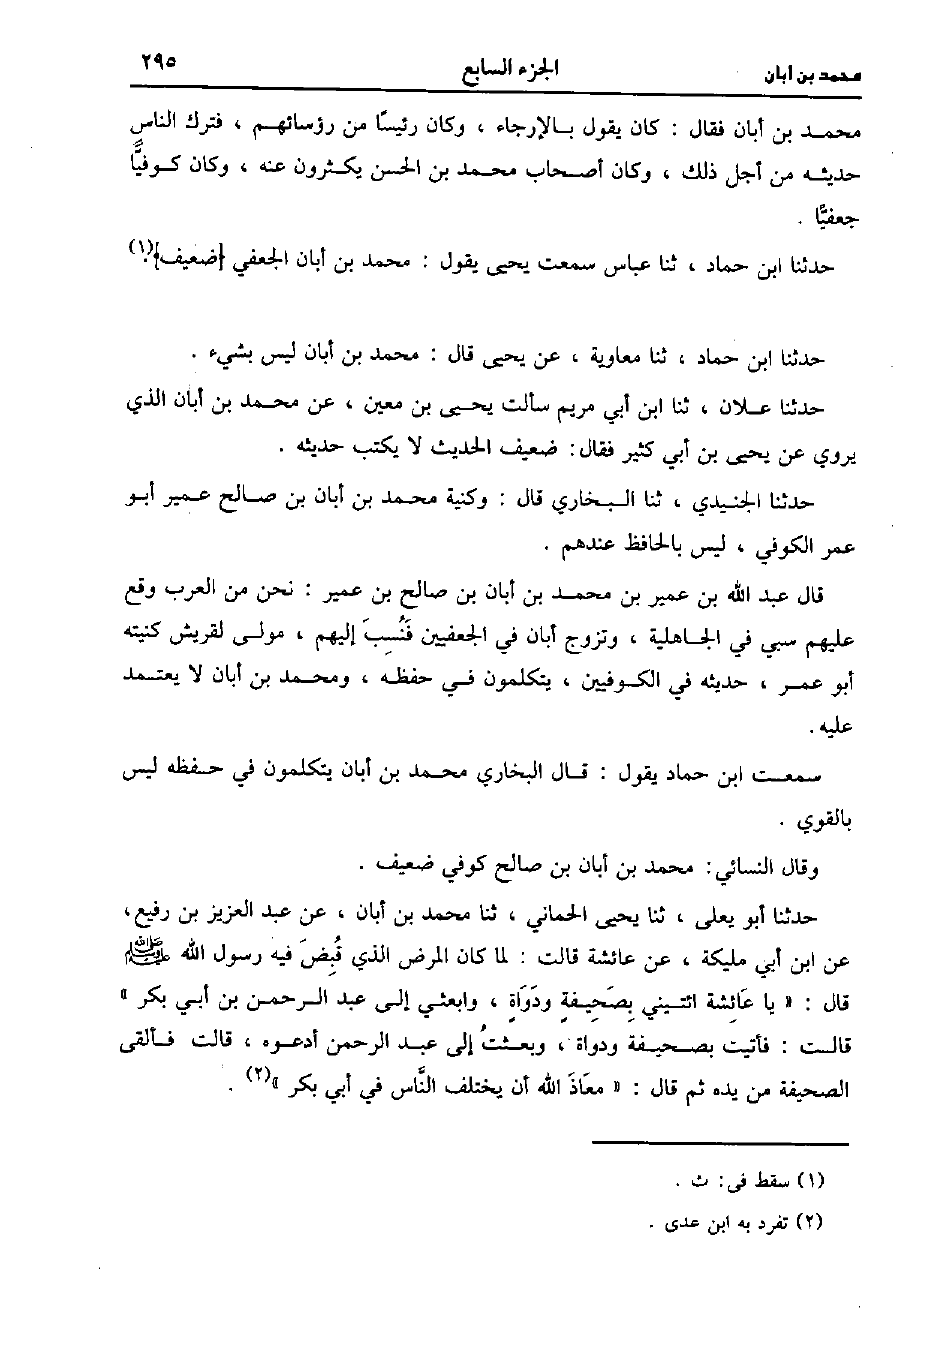 محمد بن أبان الجزء السابع ٢٩٥
محمـد بن أبان فقال : كان يقول بـالإرجاء ، وكان رئيسًا من رؤسائهـم ، فترك الناس
حديثـه من أجل ذلك ، وكان أصـحاب محـمد بن الحسن يكـثرون عنه ، وكان كـوفيًّا
جعفيًّا .
حدثنا ابن حماد ، ثنا عباس سمعت يحيى يقول : محمد بن أبان الجعفي [ضعيف].(١)
حدثنا ابن حماد ، ثنا معاوية ، عن يحيى قال : محمد بن أبان ليس بشيء .
حدثنا عـلان ، ثنا ابن أبي مريم سألت يحـيى بن معين ، عن محـمد بن أبان الذي
يروي عن يحيى بن أبي كثير فقال: ضعيف الحديث لا يكتب حديثه .
حدثنا الجنـيدي ، ثنا الـبخاري قال : وكنية محـمد بن أبان بن صـالح عـمير أبـو
عمر الكوفي ، ليس بالحافظ عندهم .
قال عبد الله بن عمير بن محمـد بن أبان بن صالح بن عمير : نحن من العرب وقع
عليهم سبي في الجـاهلية ، وتزوج أبان في الجعفيين فَنُسِبَ إليهم ، مولـى لقريش كنيته
أبو عمـر ، حديثه في الكـوفيين ، يتكلمون فـي حفظـه ، ومحـمد بن أبان لا يعتـمد
عليه .
سمعـت ابن حماد يقول : قـال البخاري محـمد بن أبان يتكلمون في حـفظه ليس
بالقوي .
وقال النسائي: محمد بن أبان بن صالح كوفي ضعيف .
حدثنا أبو يعلى ، ثنا يحيى الحماني ، ثنا محمد بن أبان ، عن عبد العزيز بن رفيع،
عن ابن أبي مليكة ، عن عائشة قالت : لما كان المرض الذي قُبِضَ فيه رسول الله ﷺ
قال : « يا عَائشة ائتـيني بِصَحيفةٍ ودَوَاةٍ ، وابعثي إلى عبد الـرحمن بن أبـي بكر »
قالـت : فأتيت بصـحيفة ودواة ، وبعـثتُ إلى عبـد الرحمن أدعـوه ، قالت فـألقى
الصحيفة من يده ثم قال : « معَاذَ الله أن يختلف النَّاس في أبي بكر »(٢) .
(١) سقط في: ث .
(٢) تفرد به ابن عدى .